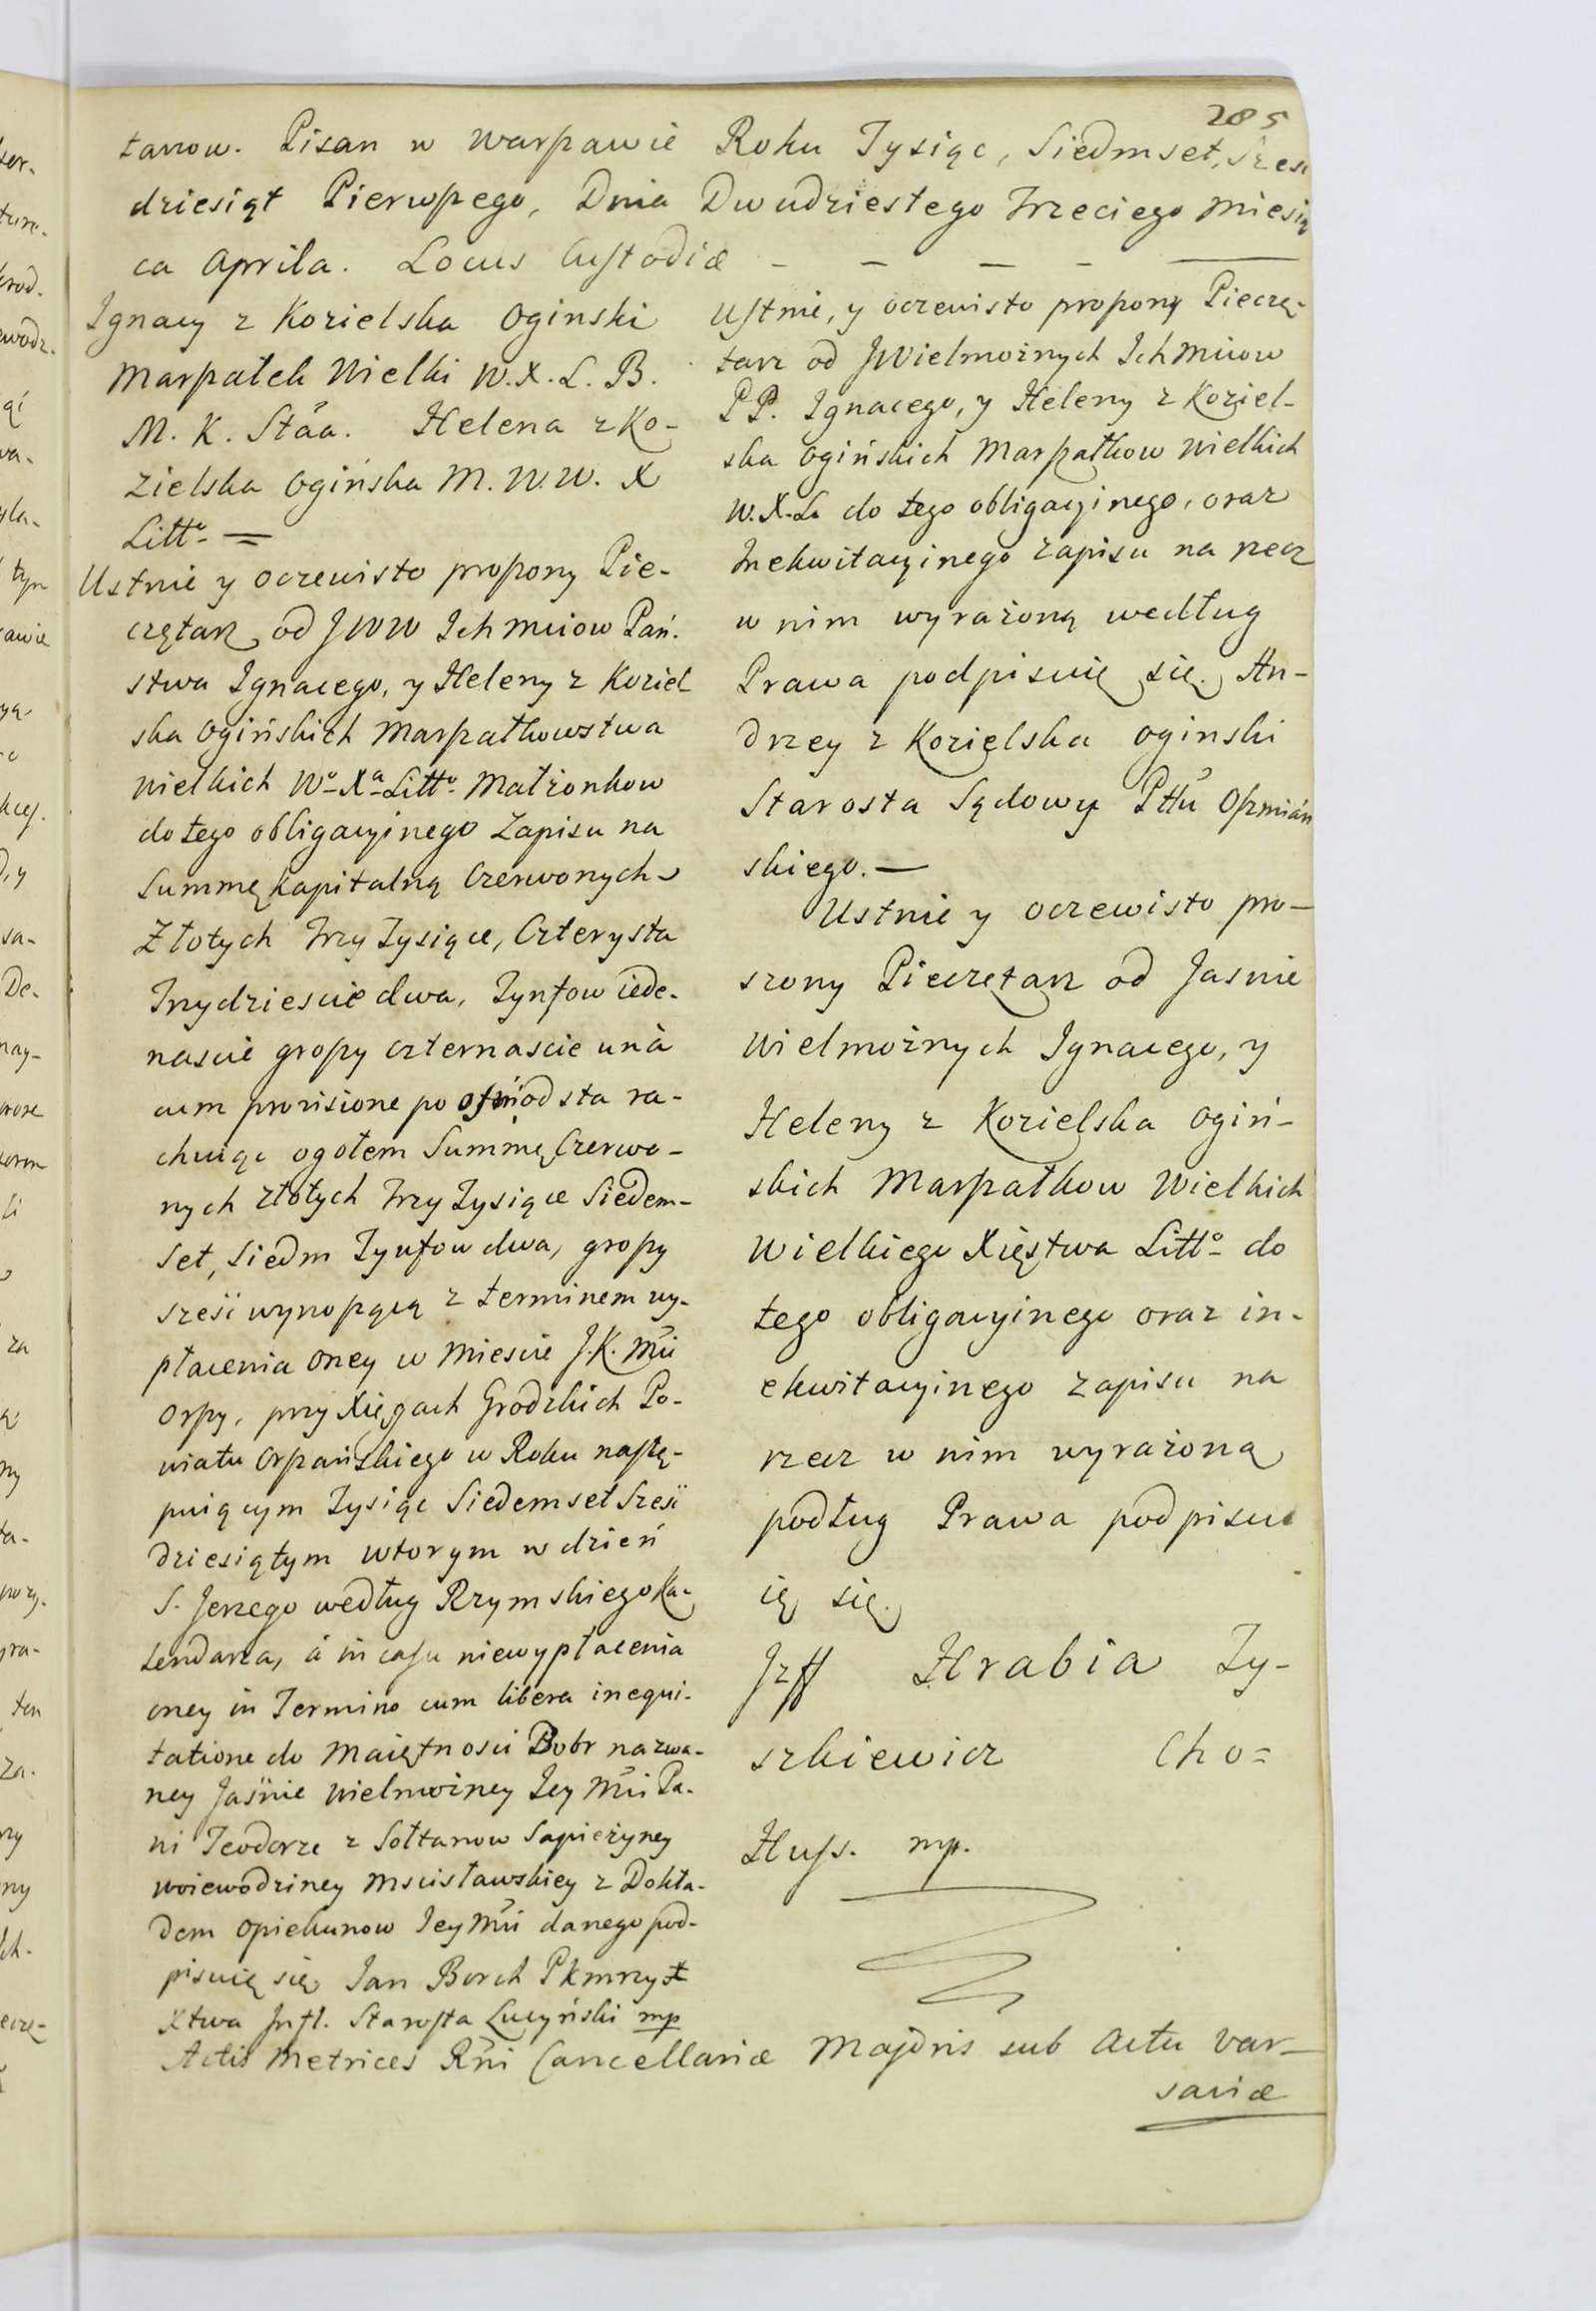 285
tarzow. Pisan w Warszawie Roku Tysiąc, Siedmset, Szesc
dziesiąt Pierwszego, Dnia Dwudziestego Trzeciego Miesią
ca Aprila. Locus Custodiæ - - - - —
Ignacy z Kozielska Oginski
Marszałek Wielki W. X. L. B.
M. K. Stãa. Helena z Ko-
zielska Ogińska M. W. W. X
Litto =
Ustnie y oczewisto proszony Pie-
czętarz od JWW Ichmciow Pań-
stwa Ignacego, y Heleny z Koziel
ska Ogińskich Marszałkowstwa
Wielkich Wo Xa Litto Małżonkow
do tego obligacyinego Zapisu na
Summę kapitalną Czerwonych
Złotych Trzy Tysiące, Czterysta
Trzydziescie dwa, Tynfow iede-
nascie groszy czternascie una
cum provisione po osmiod sta ra-
chuiąc ogołem Summę Czerwo-
nych złotych Trzy Tysiące Siedem-
set, Siedm Tynfow dwa, groszy
sześć wynoszącą z terminem wy-
płacenia oney w Miescie J. K. Mci
Orszy, przy Xięgach Grodzkich Po-
wiatu Orszańskiego w Roku nastę-
puiącym Tysiąc Siedemset Sześć
dziesiątym wtorym w dzień
S. Jerzego według Rzymskiego Ka-
lendarza, a in casu niewypłacenia
oney in Termino cum libera inequi-
tatione do Maiętnosci Bobr nazwa-
ney Jaśnie Wielmożney Jey Mci Pa-
ni Teodorze z Sołtanow Sapieżyney
Woiewodziney Mscisławskiey z Dokła-
dem Opiekunow Jey Mci danego pod-
pisuię się Jan Borch Pkmrzy
Xtwa Infl. Starosta Lucyński mp
Ustnie, y oczewisto proszony Pieczę-
tarz od JWielmożnych Ichmciow
PP. Ignacego, y Heleny z Koziel-
ska Ogińskich Marszałkow Wielkich
W. X. L. do tego obligacyinego, oraz
Inekwitacyinego zapisu na rzecz
w nim wyrażoną według
Prawa podpisuię się. An-
drzey z Kozielska Oginski
Starosta Sądowy Pttu Oszmiań
skiego. —
Ustnie y oczewisto pro-
szony Pieczętarz od Jasnie
Wielmożnych Ignacego, y
Heleny z Kozielska Ogiń-
skich Marszałkow Wielkich
Wielkiego Xięstwa Litto do
tego obligacyinego oraz in-
ekwitacyinego zapisu na
rzecz w nim wyrażoną
podług Prawa podpisu
ię się.
Jzff Hrabia Ty-
szkiewicz Cho=
Huss. mp.
Actis Metrices Rñi Cancellariæ Majoris sub Actu Var-
saviæ